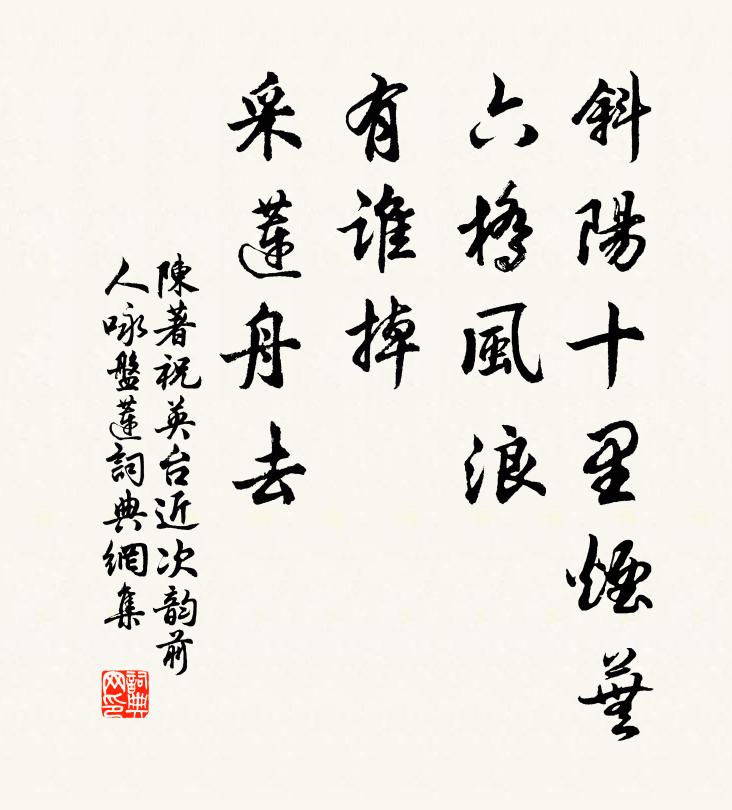 斜陽十里煙蕪
六橋風浪
有誰掉
采蓮舟去
陳著祝英台近次韵前
人咏盤蓮詞典網集
詞典
网印